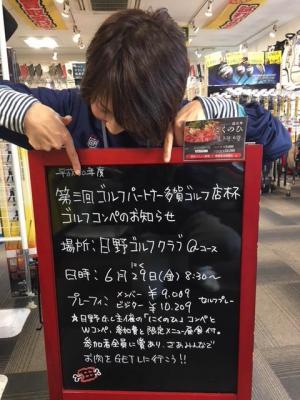 平成30年度
第三回ゴルフパートナー多賀ゴルフ店杯
ゴルフコンペのお知らせ
場所:日野ゴルフクラブ Qコース
にく
日時:6月29日(金) 8:30〜
プレーフィ:メンバー ¥9.009
ビジター ¥10.209 セルフプレー
☆日野ゴルフ主催の「にくのひ」コンペと
Wコンペ。参加費と限定メニュー昼食付。
参加者全員に賞あり、さあみんなで
お肉をGETしに行こう!!
にくのひ